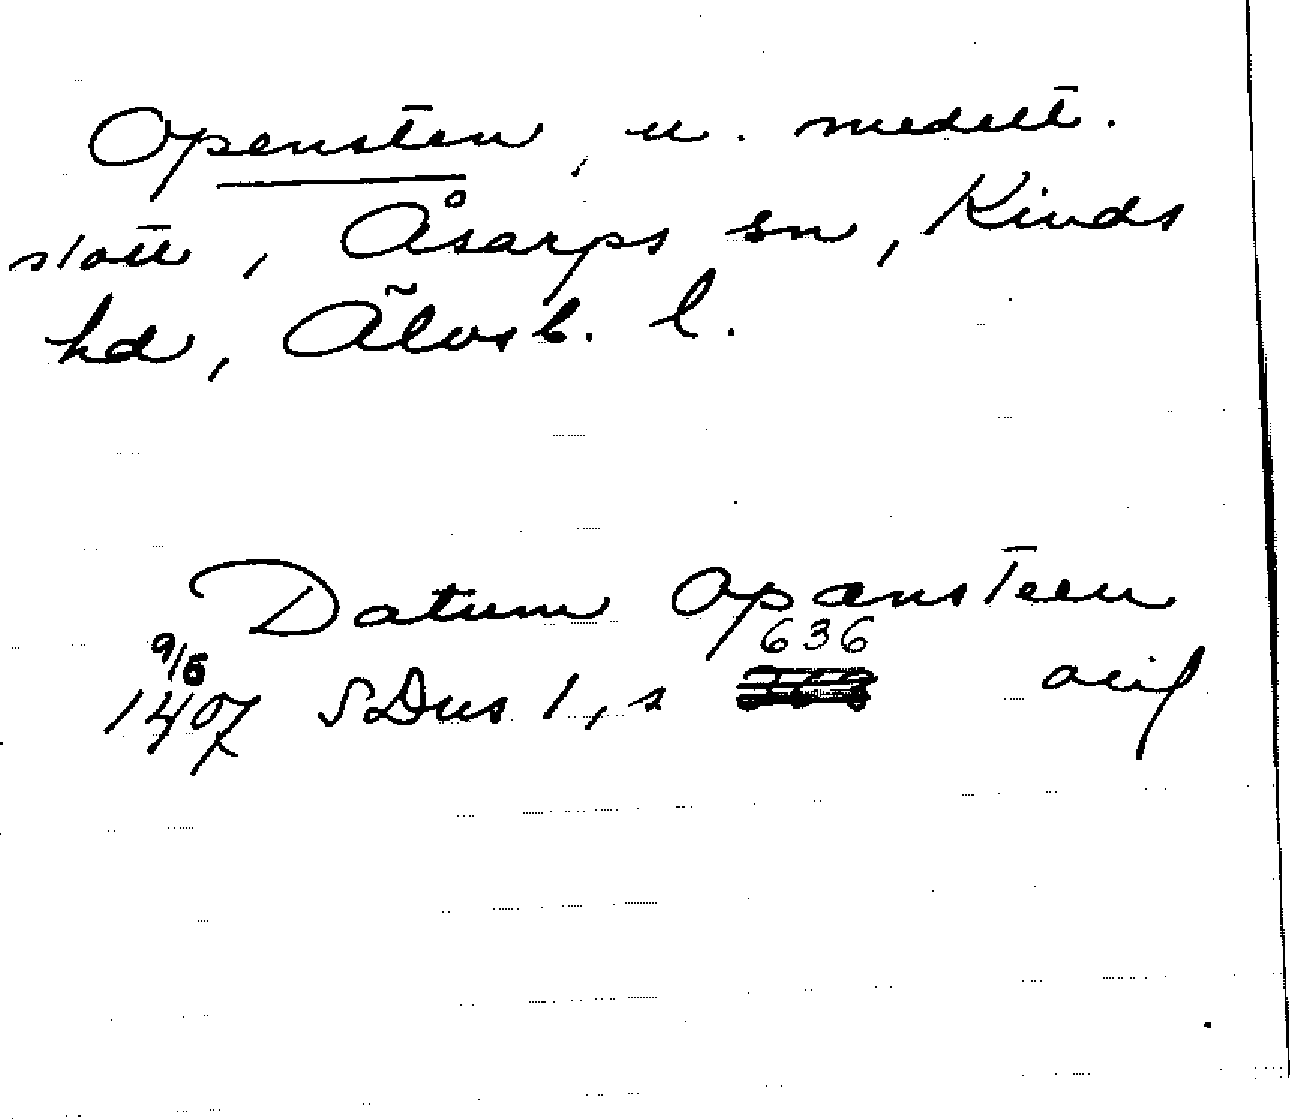 Opensten, u. medelt.
slott, Åsarps sn, Kinds
hd, Älvsb. l.
Datum Opænsteen
9/6 636
1407 SDns 1, s orig